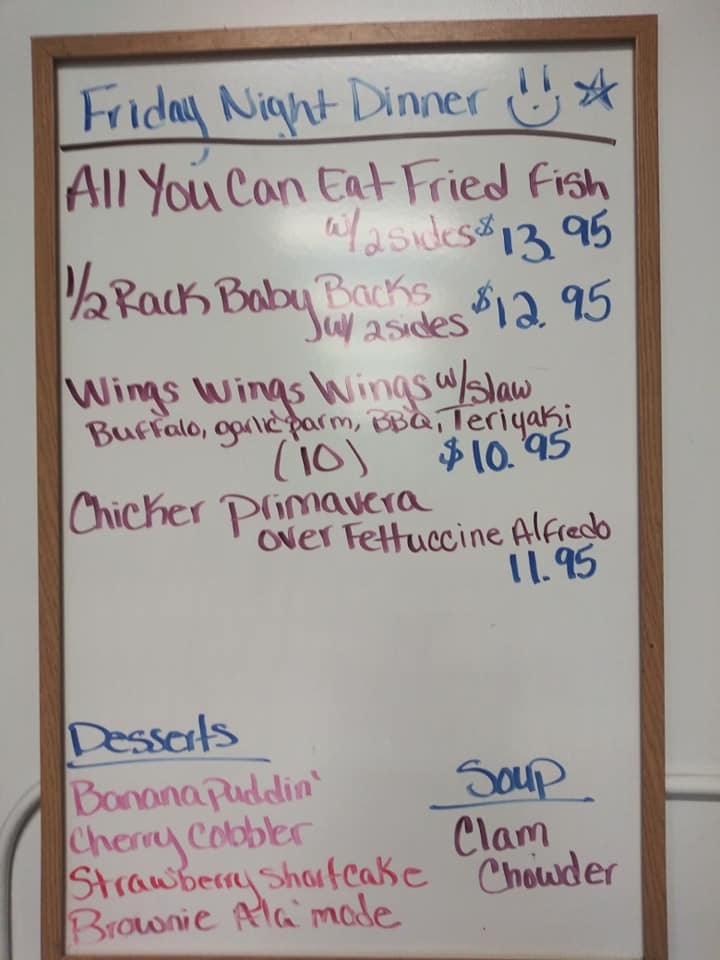 Friday Night Dinner
All You Can Eat Fried Fish
w/ 2 sides $13.95
1/2 Rack Baby Backs
w/ 2 sides $12.95
Wings Wings Wings w/slaw
Buffalo, garlic parm, BBQ, Teriyaki
(10) $10.95
Chicken Primavera
over Fettuccine Alfredo
11.95
Desserts
Banana Puddin'
Cherry Cobbler
Strawberry Shortcake
Brownie Ala' mode
Soup
Clam
Chowder